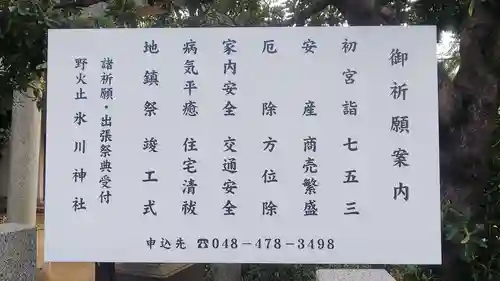 御祈願案内
初宮詣 七五三
安産 商売繁盛
厄除 方位除
家内安全 交通安全
病気平癒 住宅清祓
地鎮祭 竣工式
諸祈願・出張祭典受付
野火止 氷川神社
申込先 ☎048-478-3498